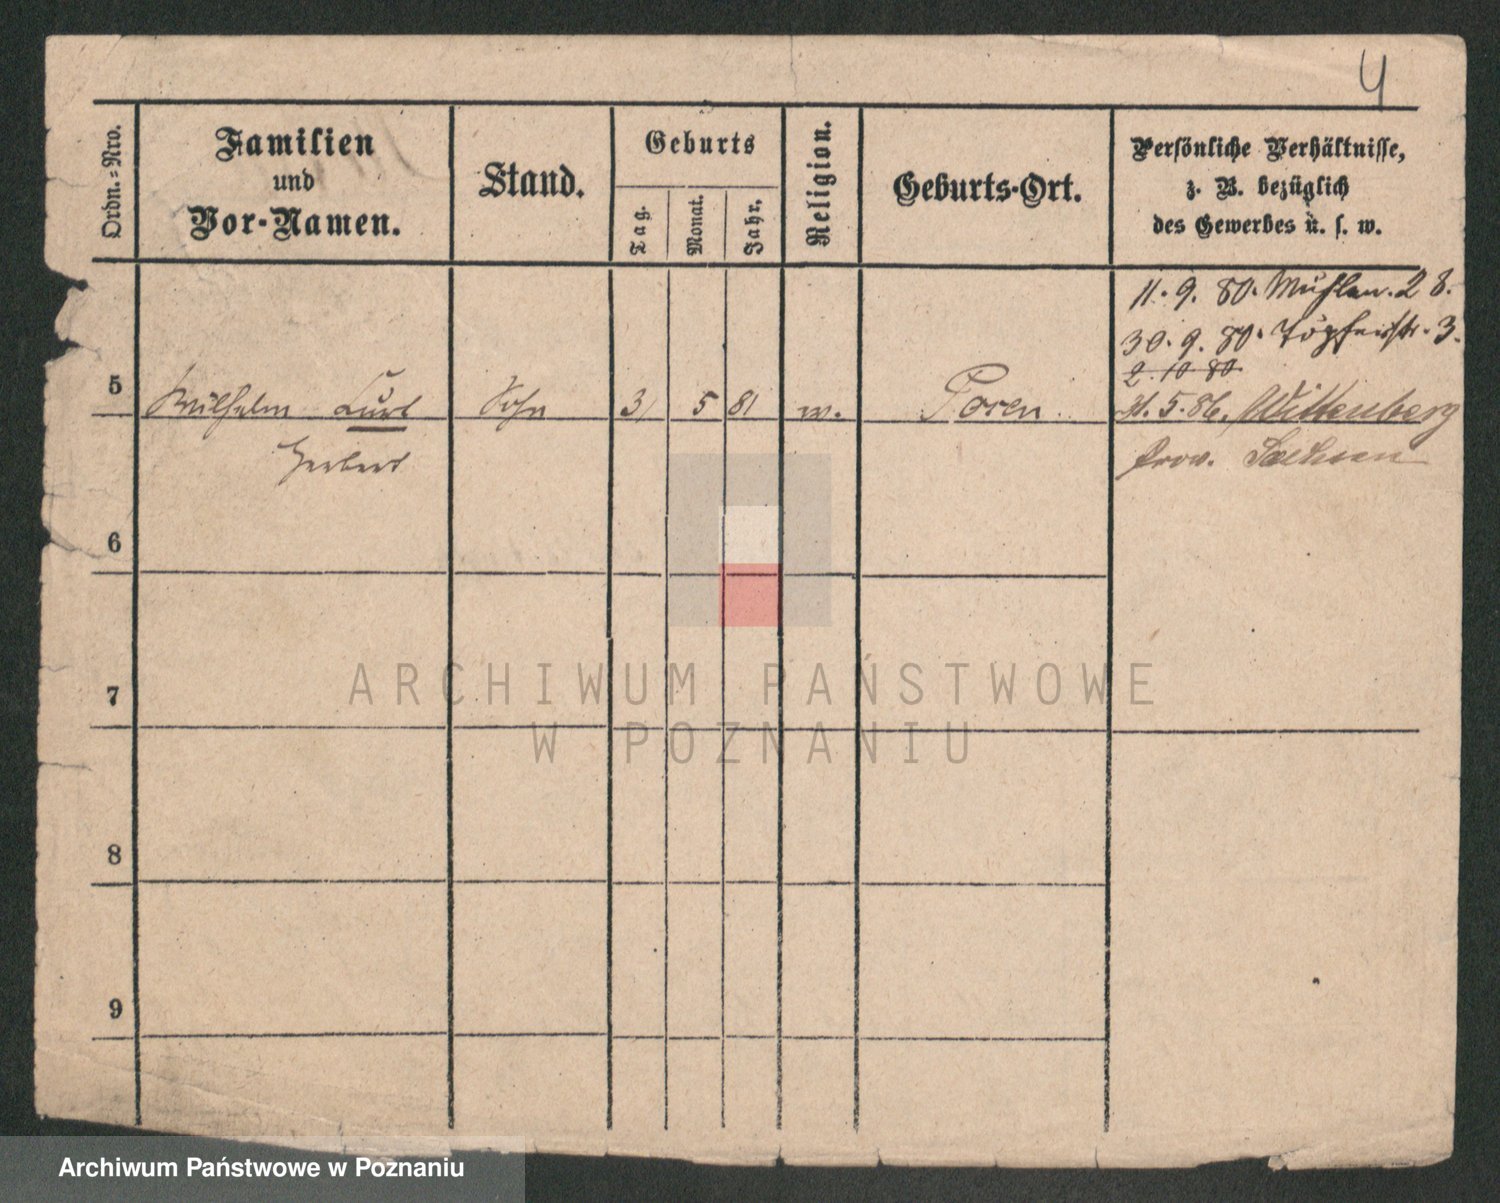 4
Ordn.=Nro.
Familien
und
Vor-Namen.
Stand.
Geburts
Tag.
Monat.
Jahr.
Religion.
Geburts-Ort.
Persönliche Verhältnisse,
z. B. bezüglich
des Gewerbes u. s. w.
11. 9. 80. Mühlen. 28.
30. 9. 80. Töpferstr. 3.
2. 10 80.
5 Wilhelm Kurt Sohn 31 5 81 Posen 31. 5. 86. Wittenberg
Herbert Prov. Sachsen
6
7
8
9
ARCHIWUM PAŃSTWOWE
W POZNANIU
Archiwum Państwowe w Poznaniu